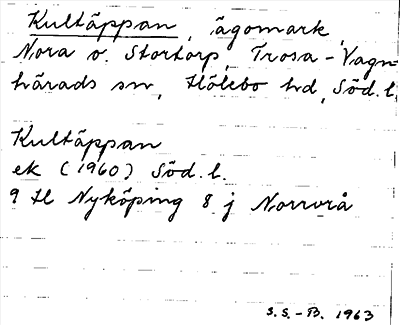 Kultäppan, ägomark,
Nora o. Stortorp, Trosa-Vagn-
härads sn, Hölebo hd, Söd. l.
Kultäppan
ek (1960) Söd. l.
9 H Nyköping 8 j Norrvrå
S.S.-B. 1963